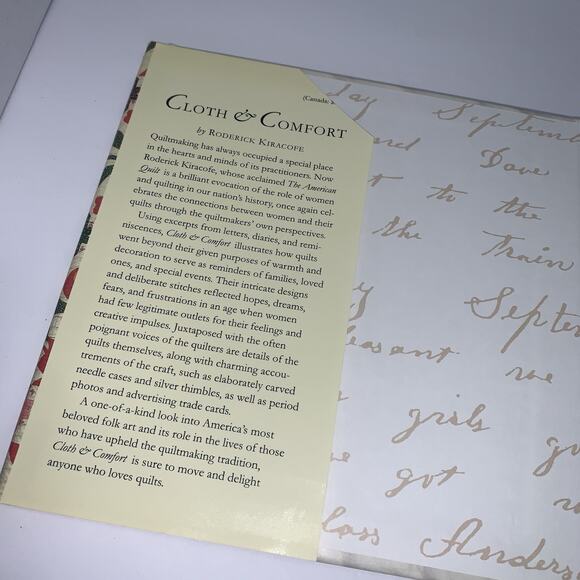 (Canada:
CLOTH & COMFORT
by RODERICK KIRACOFE
Quiltmaking has always occupied a special place
in the hearts and minds of its practitioners. Now
Roderick Kiracofe, whose acclaimed The American
Quilt is a brilliant evocation of the role of women
and quilting in our nation's history, once again cel-
ebrates the connections between women and their
quilts through the quiltmakers' own perspectives.
Using excerpts from letters, diaries, and remi-
niscences, Cloth & Comfort illustrates how quilts
went beyond their given purposes of warmth and
decoration to serve as reminders of families, loved
ones, and special events. Their intricate designs
and deliberate stitches reflected hopes, dreams,
fears, and frustrations in an age when women
had few legitimate outlets for their feelings and
creative impulses. Juxtaposed with the often
poignant voices of the quilters are details of the
quilts themselves, along with charming accou-
trements of the craft, such as elaborately carved
needle cases and silver thimbles, as well as period
photos and advertising trade cards.
A one-of-a-kind look into America's most
beloved folk art and its role in the lives of those
who have upheld the quiltmaking tradition,
Cloth & Comfort is sure to move and delight
anyone who loves quilts.
day Septemb
Dove
to the
the Train
Septem
leasant we
girls go
got
lass Anders